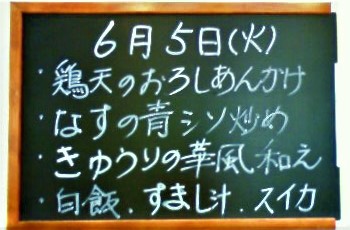 6月5日(火)
・鶏天のおろしあんかけ
・なすの青シソ炒め
・きゅうりの華風和え
・白飯.すまし汁.スイカ